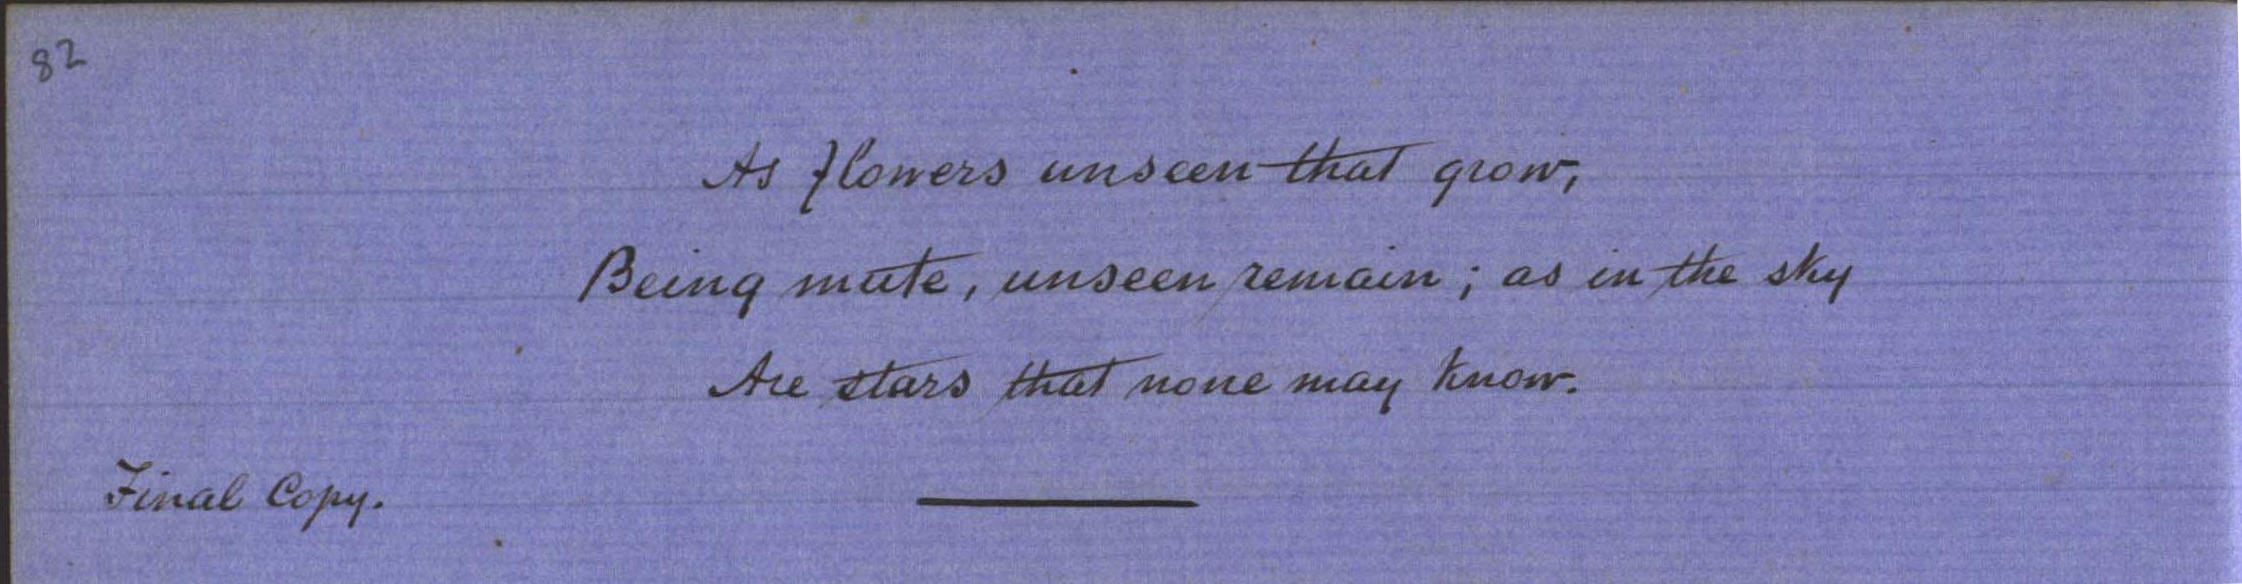 82
As flowers unseen that grow,
Being mute, unseen remain; as in the sky
Are stars that none may know.
Final Copy.